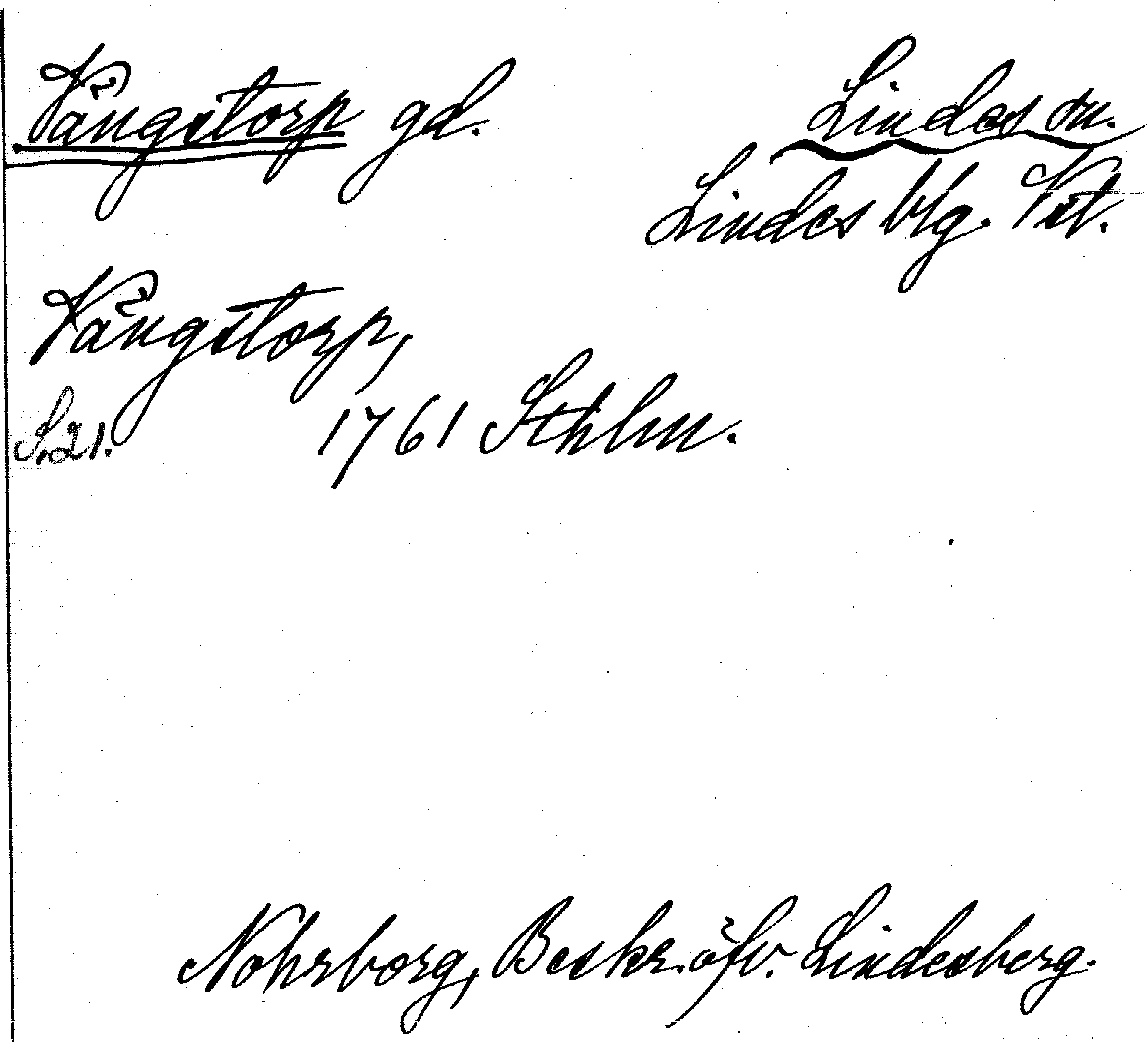 Vångstorp gd.
Lindes sn.
Lindes blg. Vst.
Vångstorp,
S.21. 1761 Sthlm.
Nohrborg, Beskr. öfv. Lindesberg.